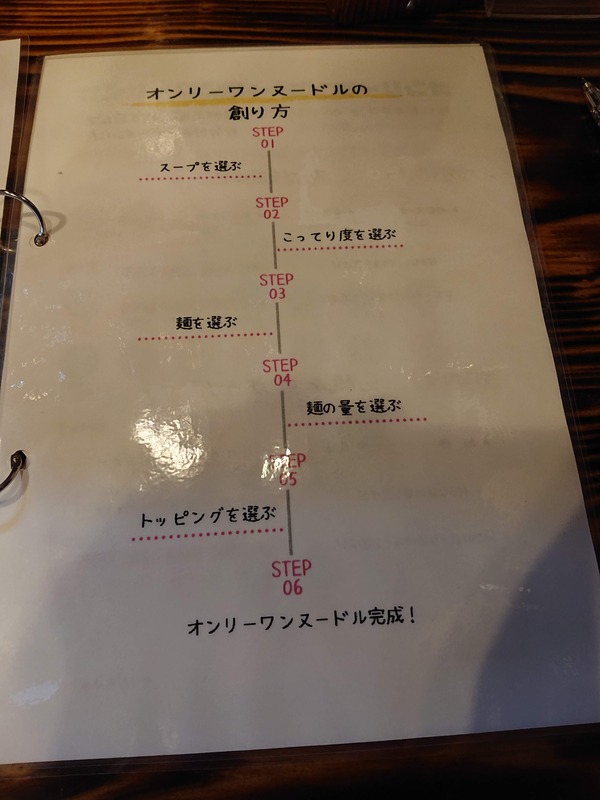 オンリーワンヌードルの
創り方
STEP
01
スープを選ぶ
STEP
02
こってり度を選ぶ
STEP
03
麺を選ぶ
STEP
04
麺の量を選ぶ
STEP
05
トッピングを選ぶ
STEP
06
オンリーワンヌードル完成!